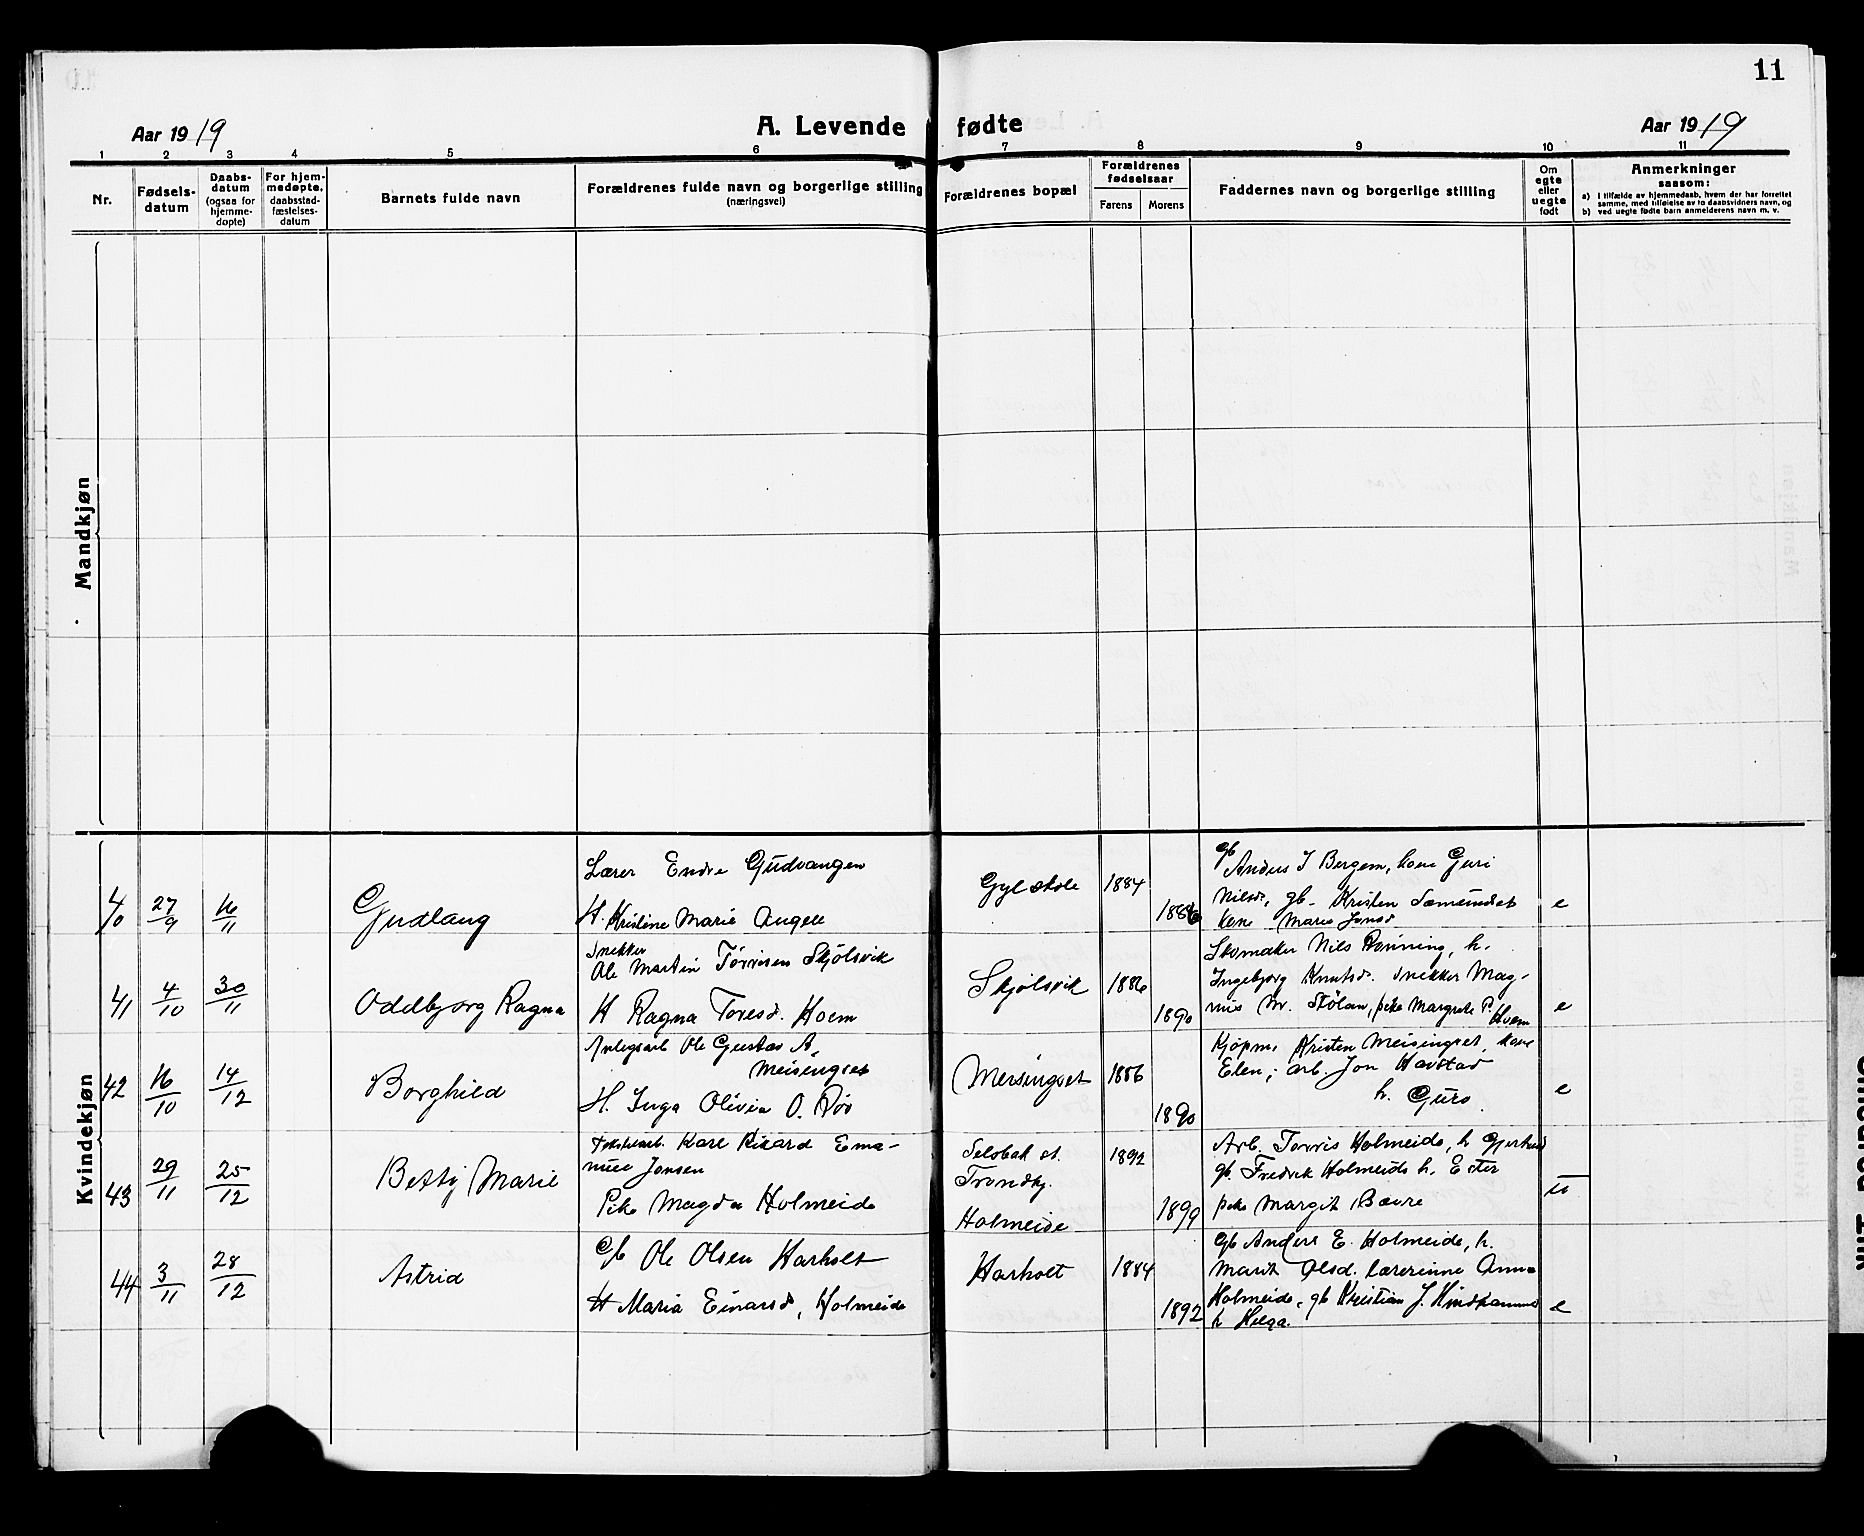 11
Aar 1919
A. Levende fødte
Aar 1919
1 2 3 4 5 6 7 8 9 10 11
Nr.
Fødsels-
datum
Daabs-
datum
(ogsaa for
hjemme-
døpte)
For hjem-
medøpte,
daabsstad-
fæstelses-
datum
Barnets fulde navn
Forældrenes fulde navn og borgerlige stilling
(næringsvei)
Forældrenes bopæl
Forældrenes
fødselsaar
Farens Morens
Faddernes navn og borgerlige stilling
Om
egte
eller
uegte
født
Anmerkninger
saasom:
a) I tilfælde av hjemmedaab, hvem der har forrettet
samme, med tilføielse av to daabsvidners navn, og
b) ved uegte fødte barn anmelderens navn m. v.
Mandkjøn
Kvindekjøn
40 27/9 16/11 Gudlaug
Lærer Endre Gudvangen
H. Kristine Marie Angell
Gyl skole 1884
1886
gb Anders J Bergem, kone Guri
Nilsd., gb. Kristen Sæmundset
kone Marie Jonsd
e
41 4/10 30/11 Oddbjørg Ragna
Snekker
Ole Martin Torrisen Skjølsvik
H Ragna Toresd. Hoem
Skjølsvik 1886
1890
Skomaker Nils Rønning, h.
Ingebjørg Knutsd. snekker Mag-
nus M. Stølan, pike Margrete P. Hoem
e
42 16/10 14/12 Borghild
Anlegsarb Ole Gustav A.
Meisingset
H. Inga Olivia O. Røv
Meisingset 1886
1890
Kjøpm. Kristen Meisingset, kone
Elen, arb. Jon Havstad
h. Guro
e
43 29/11 25/12 Betty Marie
Karl Rikard Ema-
nuel Jonsen
Pike Magda Holmeide
Selsbak st.
Trondhj.
Holmeide
1892
1899
Arb. Torris Holmeide, h
gb. Fredrik Holmeide h. Ester
pike Margit Bævre
u
44 3/11 28/12 Astrid
gb Ole Olsen Harholt
H Maria Einarsd, Holmeide
Harholt 1884
1892
gb Anders E. Holmeide, h.
Marit Olsd. lærerinne Anna
Holmeide, gb Kristian J.
h Helga.
e